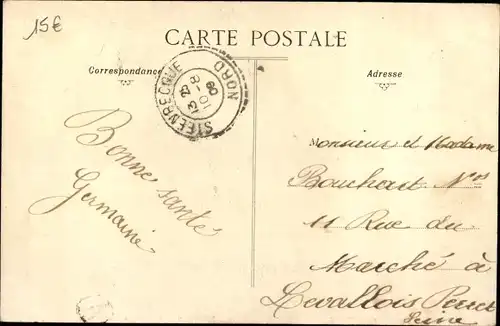 15€
CARTE POSTALE
Correspondance
Adresse
STEENBECQUE
NORD
Bonne santé
Germaine
Monsieur et Madame
11 Rue du
Marché à
Levallois Perret
Seine